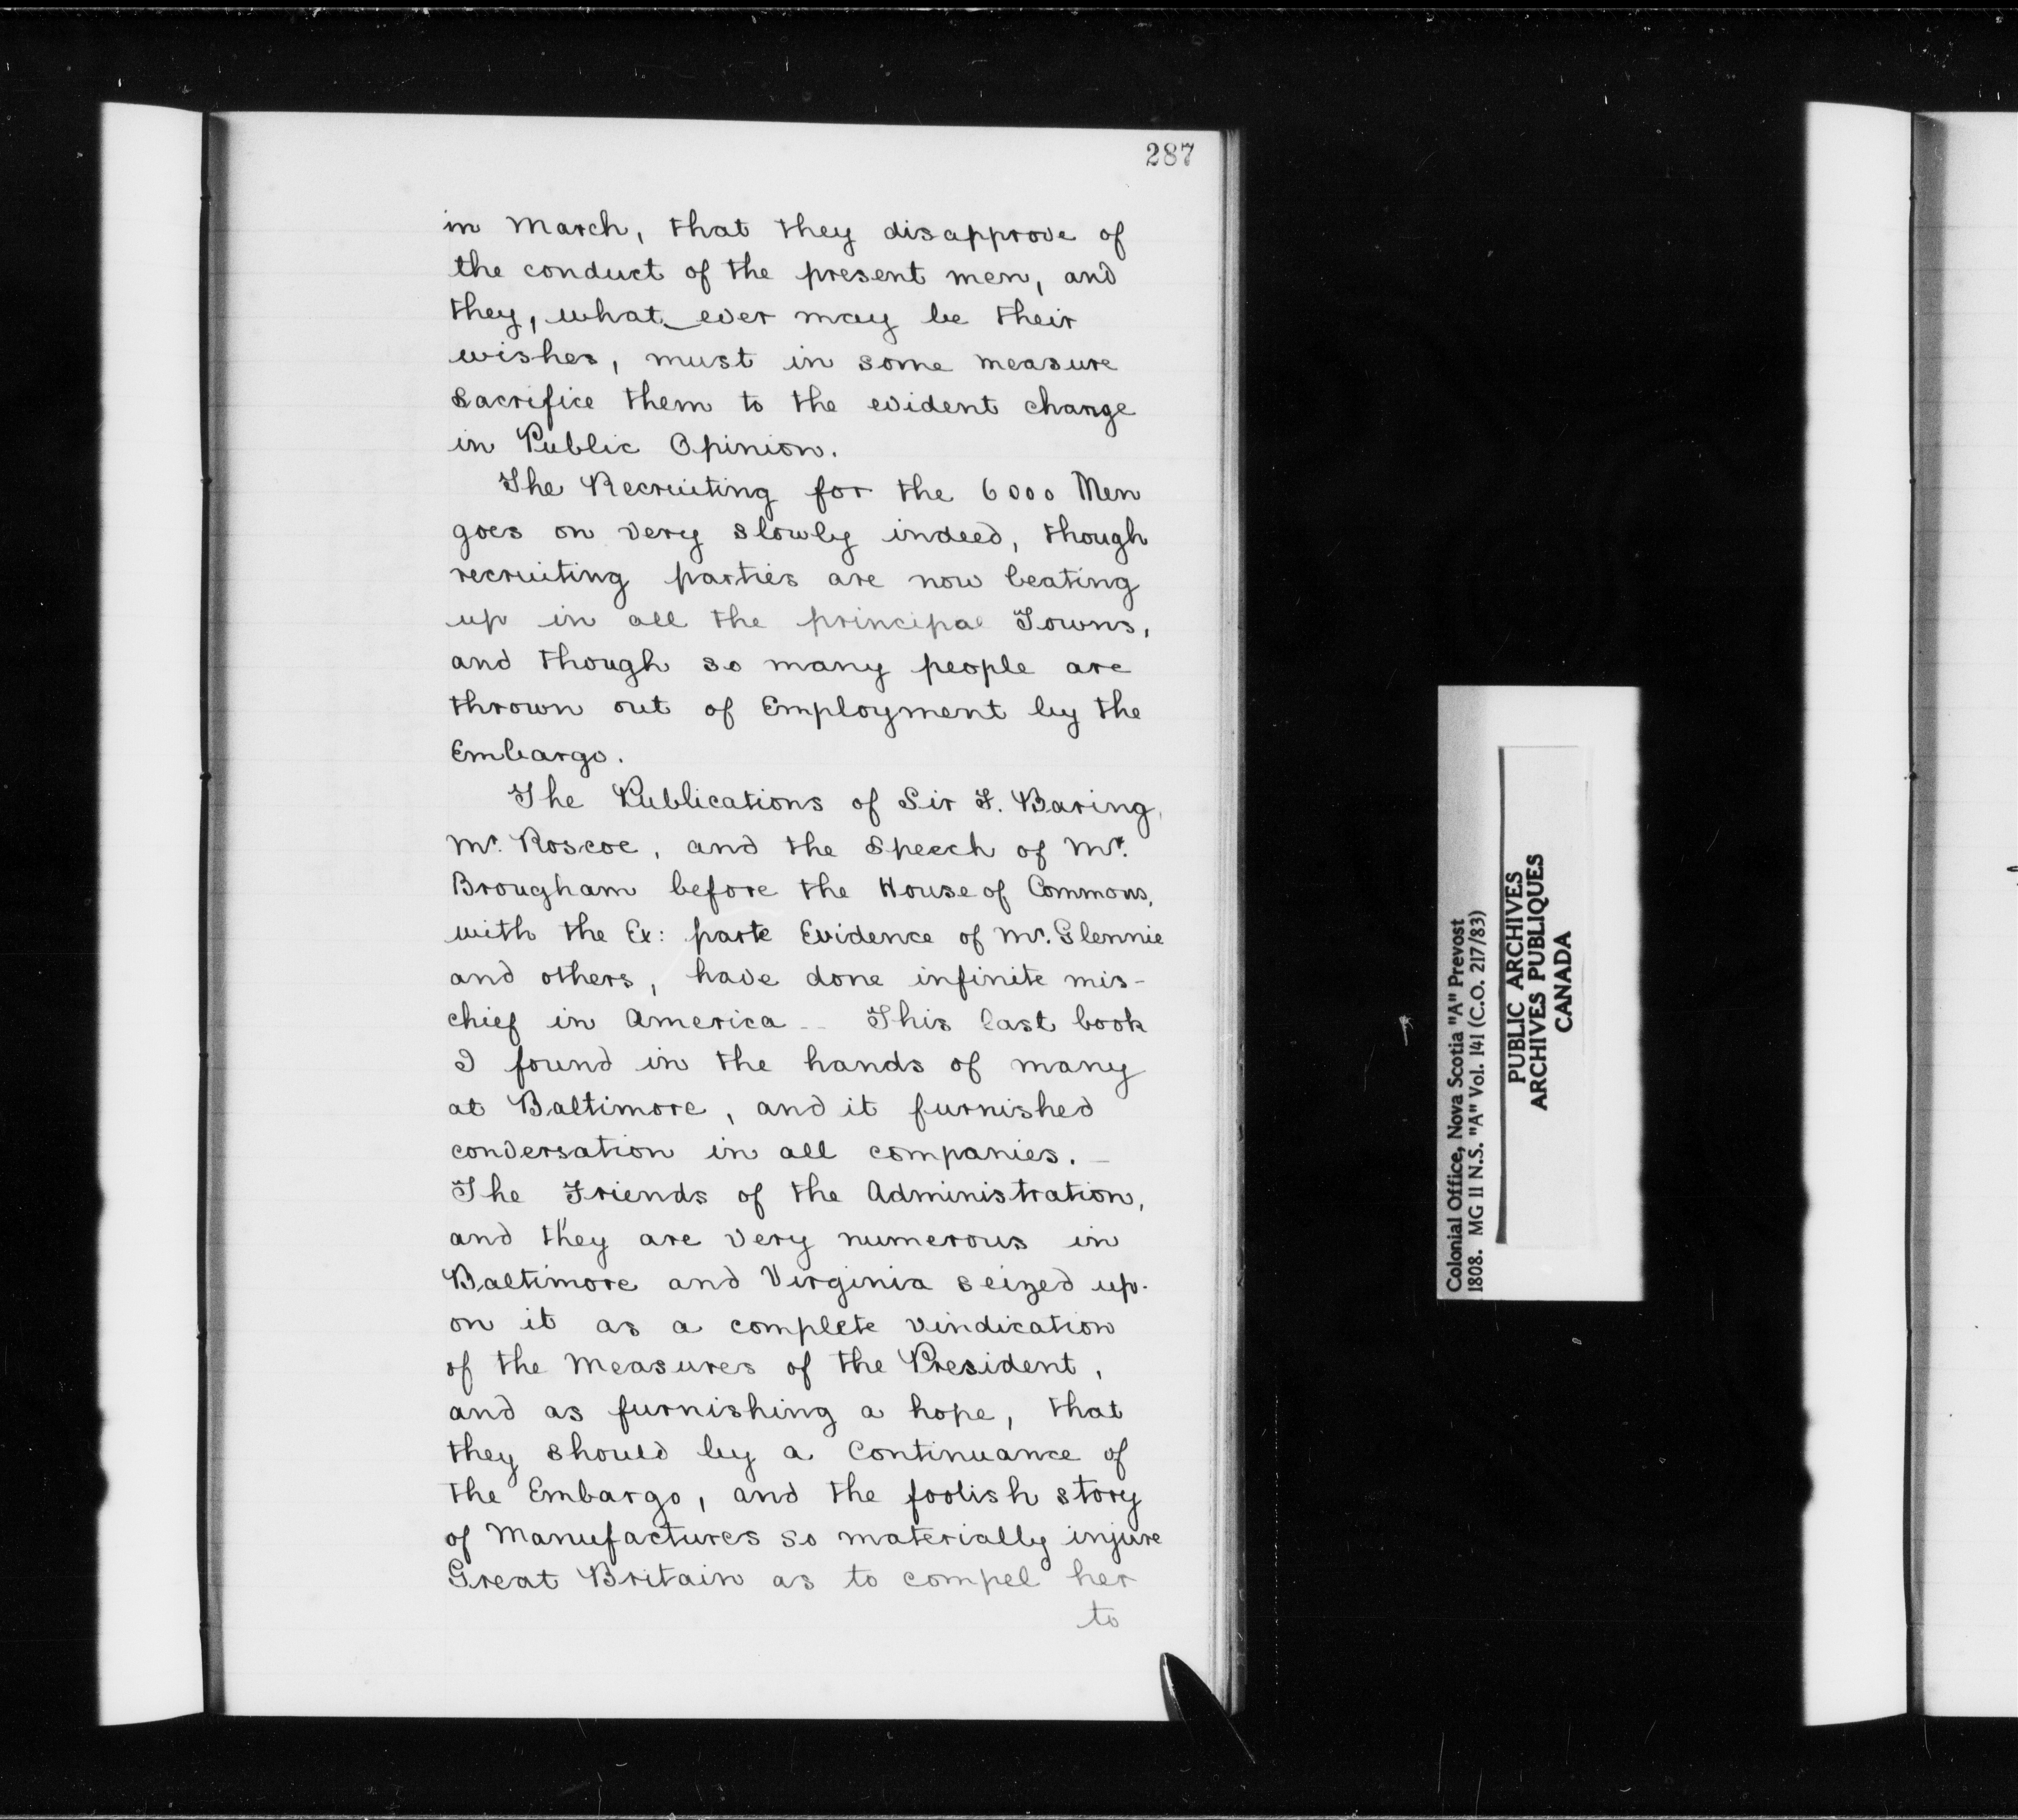 287
in March, that they disapprove of
the conduct of the present men, and
they, what ever may be their
wishes, must in some measure
sacrifice them to the evident change
in Public Opinion.
The Recruiting for the 6000 Men
goes on very slowly indeed, though
recruiting parties are now beating
up in all the principal Towns,
and though so many people are
thrown out of Employment by the
Embargo.
The Publications of Sir F. Baring,
Mr. Roscoe, and the Speech of Mr.
Brougham before the House of Commons,
with the Ex: parte Evidence of Mr. Glennie
and others, have done infinite mis-
chief in America -- This last book
I found in the hands of many
at Baltimore, and it furnished
conversation in all companies. -
The Friends of the Administration,
and they are very numerous in
Baltimore and Virginia seized up-
on it as a complete vindication
of the Measures of the President,
and as furnishing a hope, that
they should by a Continuance of
the Embargo, and the foolish story
of Manufactures so materially injure
Great Britain as to compel her
to
Colonial Office, Nova Scotia "A" Prevost
1808. MG 11 N.S. "A" Vol. 141 (C.O. 217/83)
PUBLIC ARCHIVES
ARCHIVES PUBLIQUES
CANADA